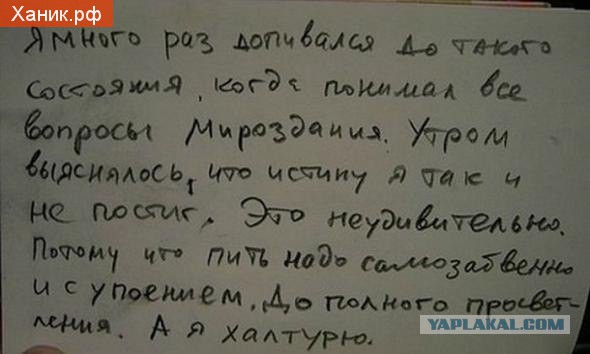 Ханик.рф
Я много раз допивался до такого
состояния, когда понимал все
вопросы Мироздания. Утром
выяснялось, что истину я так и
не постиг. Это неудивительно.
Потому что пить надо самозабвенно
и с упоением. До полного просвет-
ления. А я халтурю.
YAPLAKAL.COM